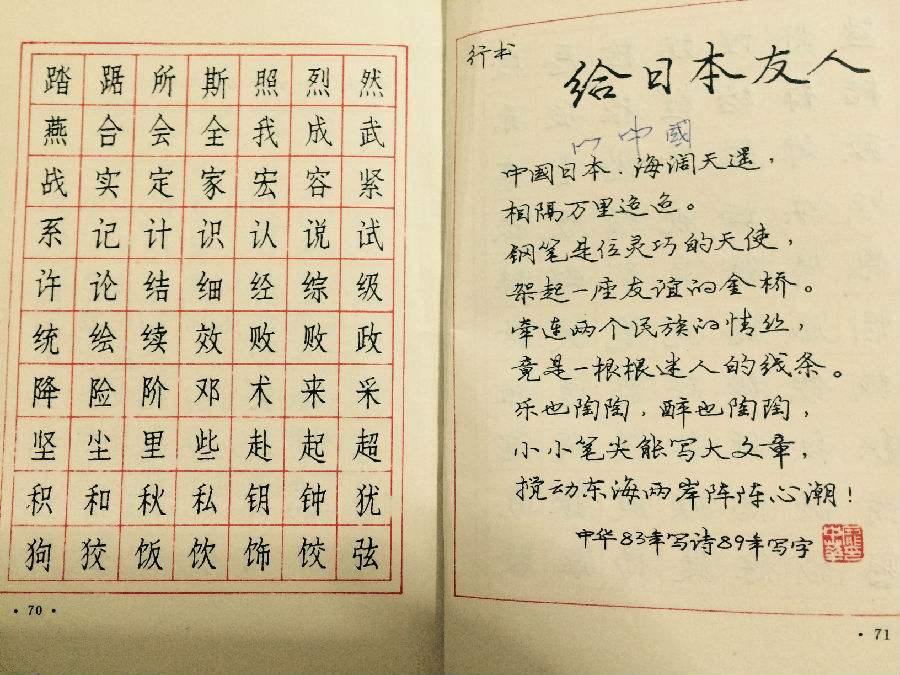 踏踞所斯照烈然
燕合会全我成武
战实定家宏容紧
系记计识认说试
许论结细经综级
统绘续效败败政
降险阶邓术来采
坚尘里些赴起超
积和秋私钥钟犹
狗狡饭饮饰饺弦
· 70 ·
行书
给日本友人
中國
中國日本、海阔天遥，
相隔万里迢迢。
钢笔是位灵巧的天使，
架起一座友谊的金桥。
牵连两个民族的情丝，
竟是一根根迷人的线条。
乐也陶陶，醉也陶陶，
小小笔尖能写大文章，
搅动东海两岸阵阵心潮！
中华83年写诗89年写字
· 71